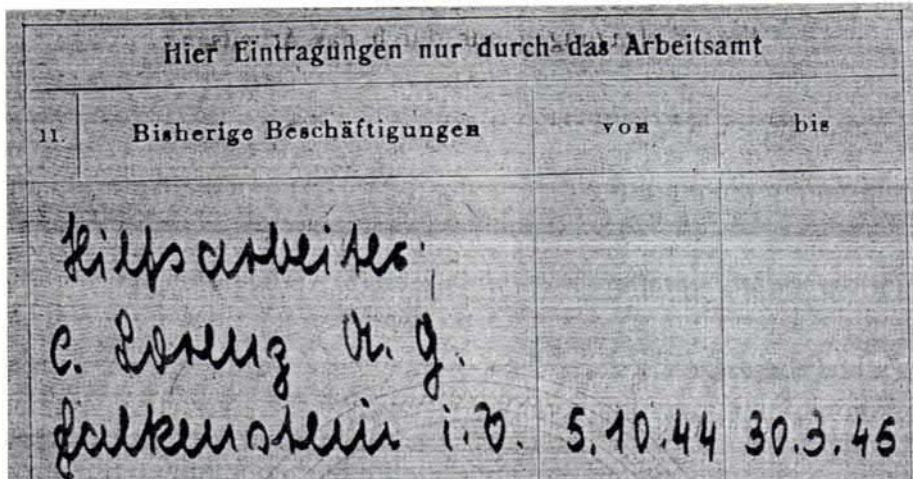 Hier Eintragungen nur durch das Arbeitsamt
11. Bisherige Beschäftigungen von bis
Hilfsarbeiter
C. Lorenz A. G.
Falkenstein i. V. 5.10.44 30.3.45